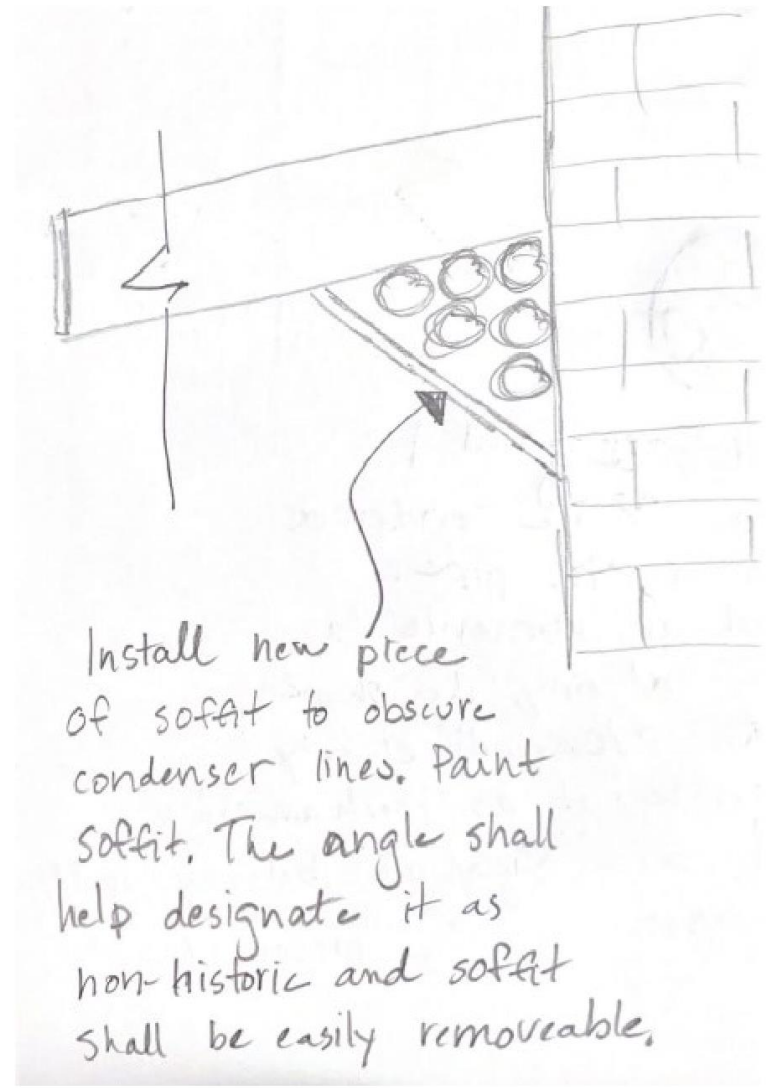 Install new piece
of soffit to obscure
condenser lines. Paint
soffit. The angle shall
help designate it as
non-historic and soffit
shall be easily removeable.